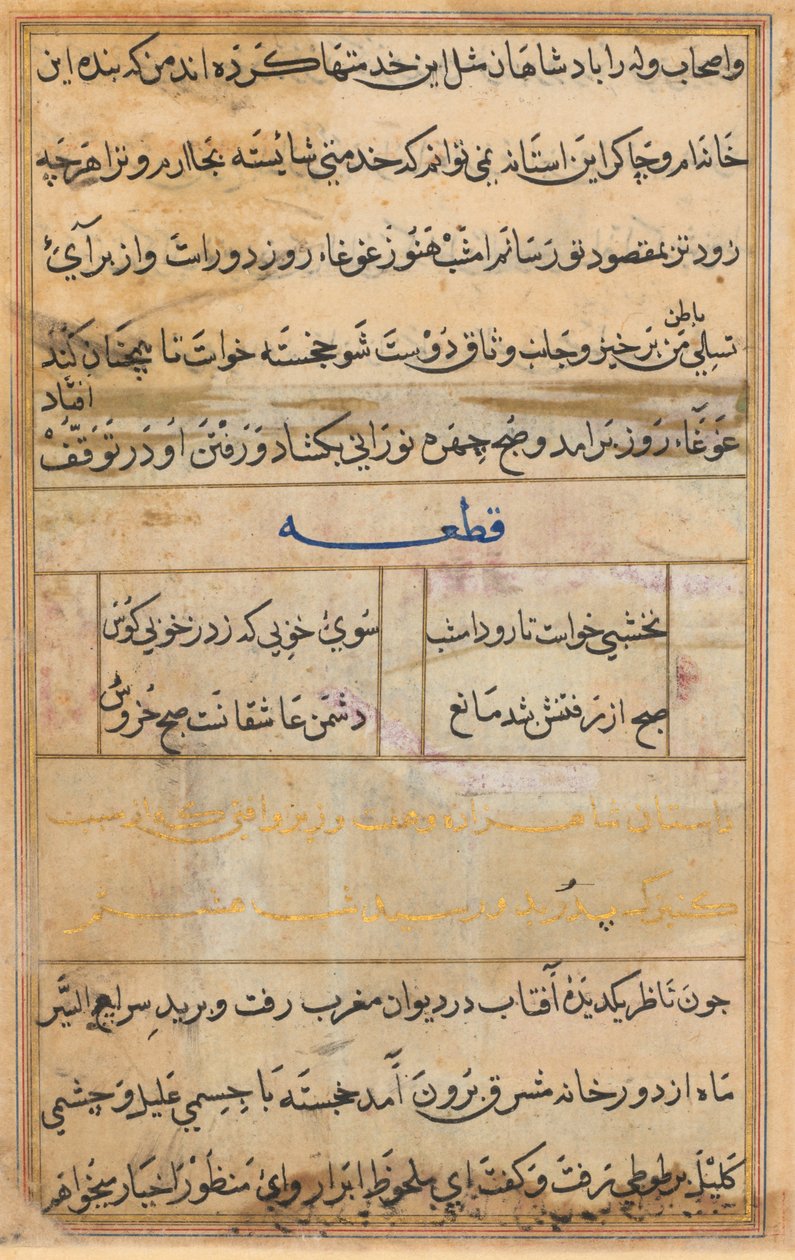 واصحاب وله را بادشاهان مثل این خدمتها کرده اند من که بنده این
خاندام و چاکر این استانه نمی توانم که خدمتی شائیسته بجا ارم و ترا هرچه
زود تر بمقصود تو رسانم امشب هنوز غوغاء روز دور است و از برآیٔ
باطن
تسلی من برخیز و جانب وثاق دوست شو خجسته خواست تا همچنان کند
غوغاء روز برامد و صبح چهره نورانی بکشاد و رفتن او در توقف
افتاد
قطعه
نخشبی خواست تا رود امشب
سویٔ خوبی که زد ز خوبی کوس
صبح از رفتنش شد مانع
دشمن عاشقانست صبح خروس
داستان شاهزاده و هفت وزیر و آفتی که از سبب
کنیزک پدر بدو رسید شب هشتم
چون ناظر یکدیدهٔ آفتاب در دیوان مغرب رفت و برید سریع السیر
ماه از دور خانه مشرق برون آمد خجسته با جسمی علیل و چشمی
کلیل بر طوطی رفت و کفت ای ملحوظ ابرار وای منظور اخیار میخواهم